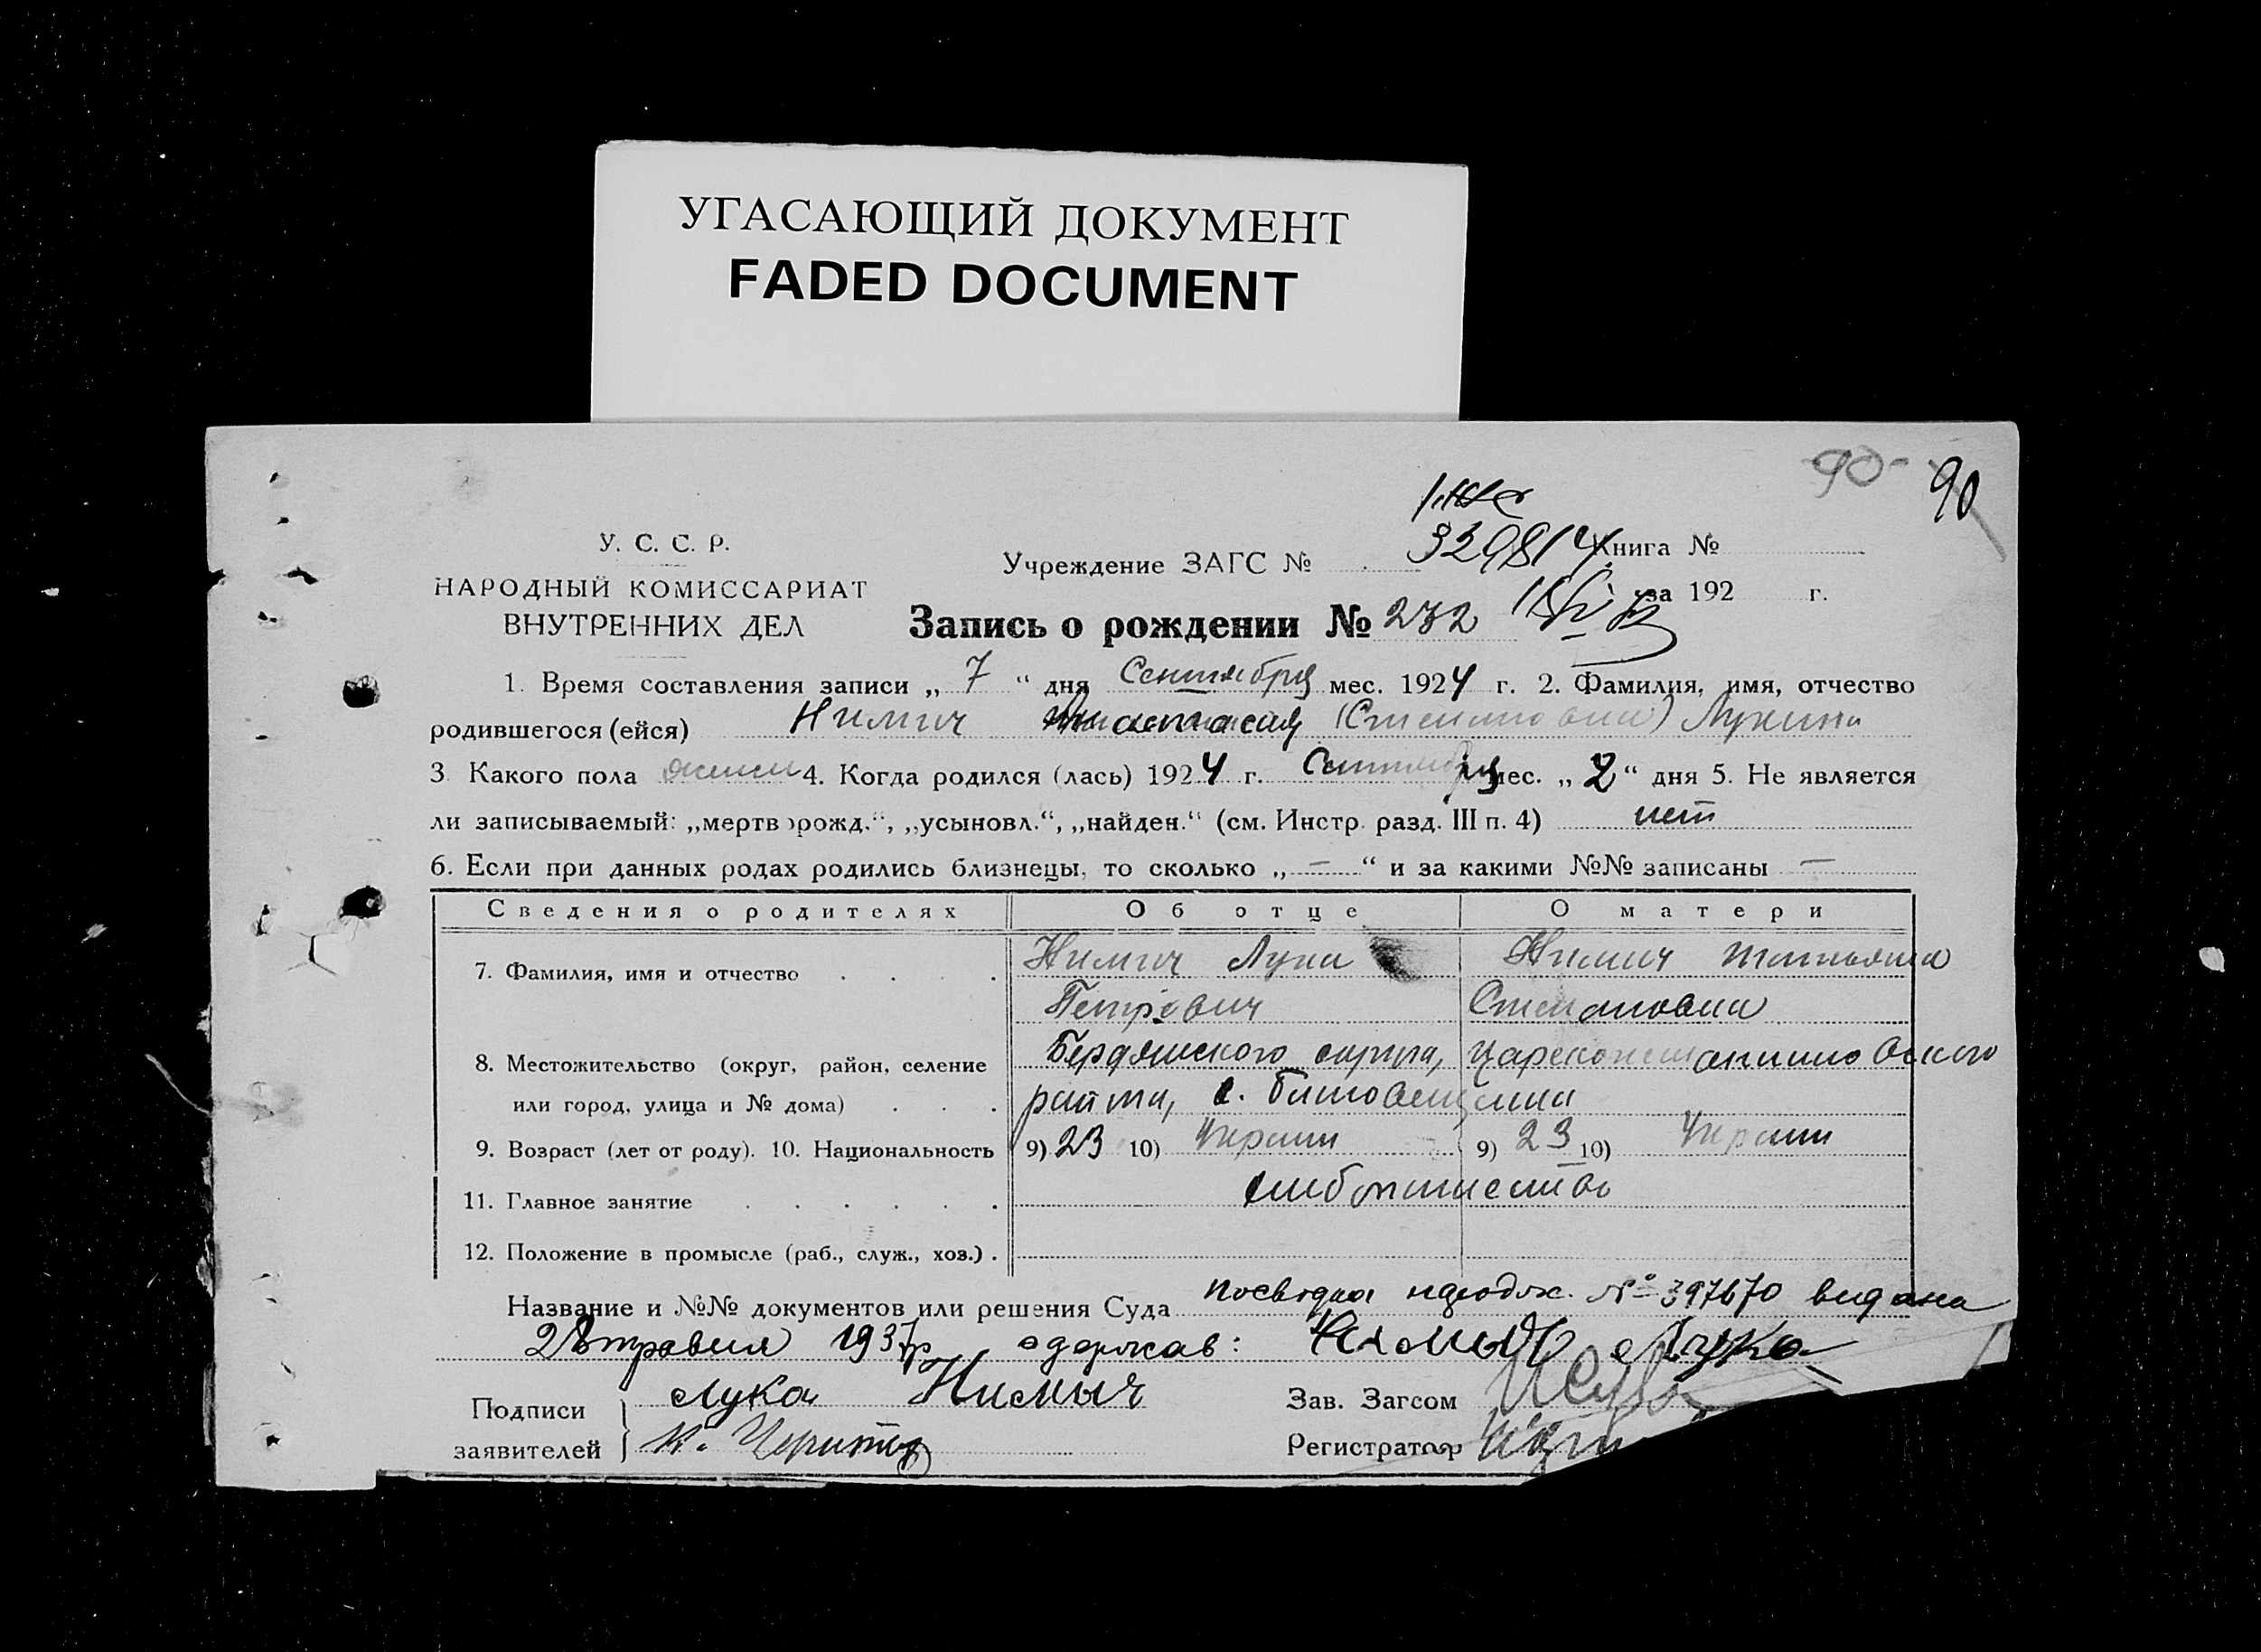 УГАСАЮЩИЙ ДОКУМЕНТ
FADED DOCUMENT
90 90
У. С. С. Р.
НАРОДНЫЙ КОМИССАРИАТ
ВНУТРЕННИХ ДЕЛ
Учреждение ЗАГС № 329814 Книга №
за 192 г.
Запись о рождении № 232
1. Время составления записи „ 7 “ дня Сентября мес. 1924 г. 2. Фамилия, имя, отчество
родившегося (ейся) Нимич Анастасия (Степановна) Лукина
3 Какого пола женск 4. Когда родился (лась) 1924 г. Сентября мес. „ 2 “ дня 5. Не является
ли записываемый: „мертворожд.“, „усыновл.“, „найден.“ (см. Инстр. разд. III п. 4) нет
6. Если при данных родах родились близнецы, то сколько „ — “ и за какими №№ записаны —
Сведения о родителях Об отце О матери
7. Фамилия, имя и отчество Нимич Лука Нимич Татьяна
Петрович Степановна
8. Местожительство (округ, район, селение Бердянского округа, Царевоконстантиновского
или город, улица и № дома) района, с.
9. Возраст (лет от роду). 10. Национальность 9) 23 10) Украин 9) 23 10) Украин
11. Главное занятие хлебопашество
12. Положение в промысле (раб., служ., хоз.)
Название и №№ документов или решения Суда Посвідка № 397670 видана
28 травня 1937 р одержав: Нимыч Лука
Подписи заявителей Лука Нимыч Зав. Загсом
К. Регистратор